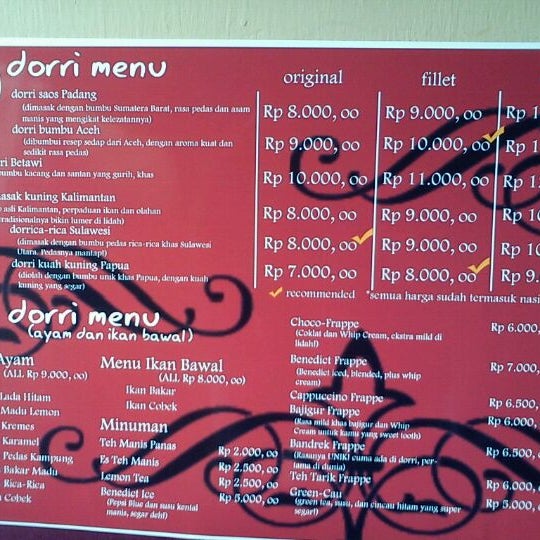 dorri menu
original
fillet
dorri saos Padang
(dimasak dengan bumbu Sumatera Barat, rasa pedas dan asam
manis yang mengikat kelezatannya)
Rp 8.000, 00
Rp 9.000, 00
Rp 1
dorri bumbu Aceh
(dibumbui resep sedap dari Aceh, dengan aroma kuat dan
sedikit rasa pedas)
Rp 9.000, 00
Rp 10.000, 00
Rp 1
ri Betawi
bumbu kacang dan santan yang gurih, khas
Rp 10.000, 00
Rp 11.000, 00
Rp 1
asak kuning Kalimantan
asli Kalimantan, perpaduan ikan dan olahan
tradisionalnya bikin lumer di lidah)
Rp 8.000, 00
Rp 9.000, 00
Rp 10
dorrica-rica Sulawesi
(dimasak dengan bumbu pedas rica-rica khas Sulawesi
Utara. Pedasnya mantap!)
Rp 8.000, 00
Rp 9.000, 00
Rp 10
dorri kuah kuning Papua
(diolah dengan bumbu unik khas Papua, dengan kuah
kuning yang segar)
Rp 7.000, 00
Rp 8.000, 00
Rp 9.
recommended *semua harga sudah termasuk nasi
dorri menu
(ayam dan ikan bawal)
Ayam
(ALL Rp 9.000, 00)
Lada Hitam
Madu Lemon
Kremes
Karamel
Pedas Kampung
Bakar Madu
Rica-Rica
Cobek
Menu Ikan Bawal
(ALL Rp 8.000, 00)
Ikan Bakar
Ikan Cobek
Minuman
Teh Manis Panas Rp 2.000, 00
Es Teh Manis Rp 2.500, 00
Lemon Tea Rp 2.500, 00
Benedict Ice Rp 5.000, 00
(Pepsi Blue dan susu kental
manis, segar deh!)
Choco-Frappe Rp 6.000,
(Coklat dan Whip Cream, ekstra mild di
lidah!)
Benedict Frappe Rp 7.000,
(Benedict iced, blended, plus whip
cream)
Cappuccino Frappe Rp 6.500,
Bajigur Frappe Rp 6.000,
(Rasa mild khas bajigur dan Whip
Cream untuk kamu yang sweet tooth)
Bandrek Frappe Rp 6.500,
(Rasanya UNIK! cuma ada di dorri, per-
lama di dunia)
Teh Tarik Frappe Rp 6.000,
Green-Cau Rp 5.000,
(green tea, susu, dan cincau hitam yang super
segar!)